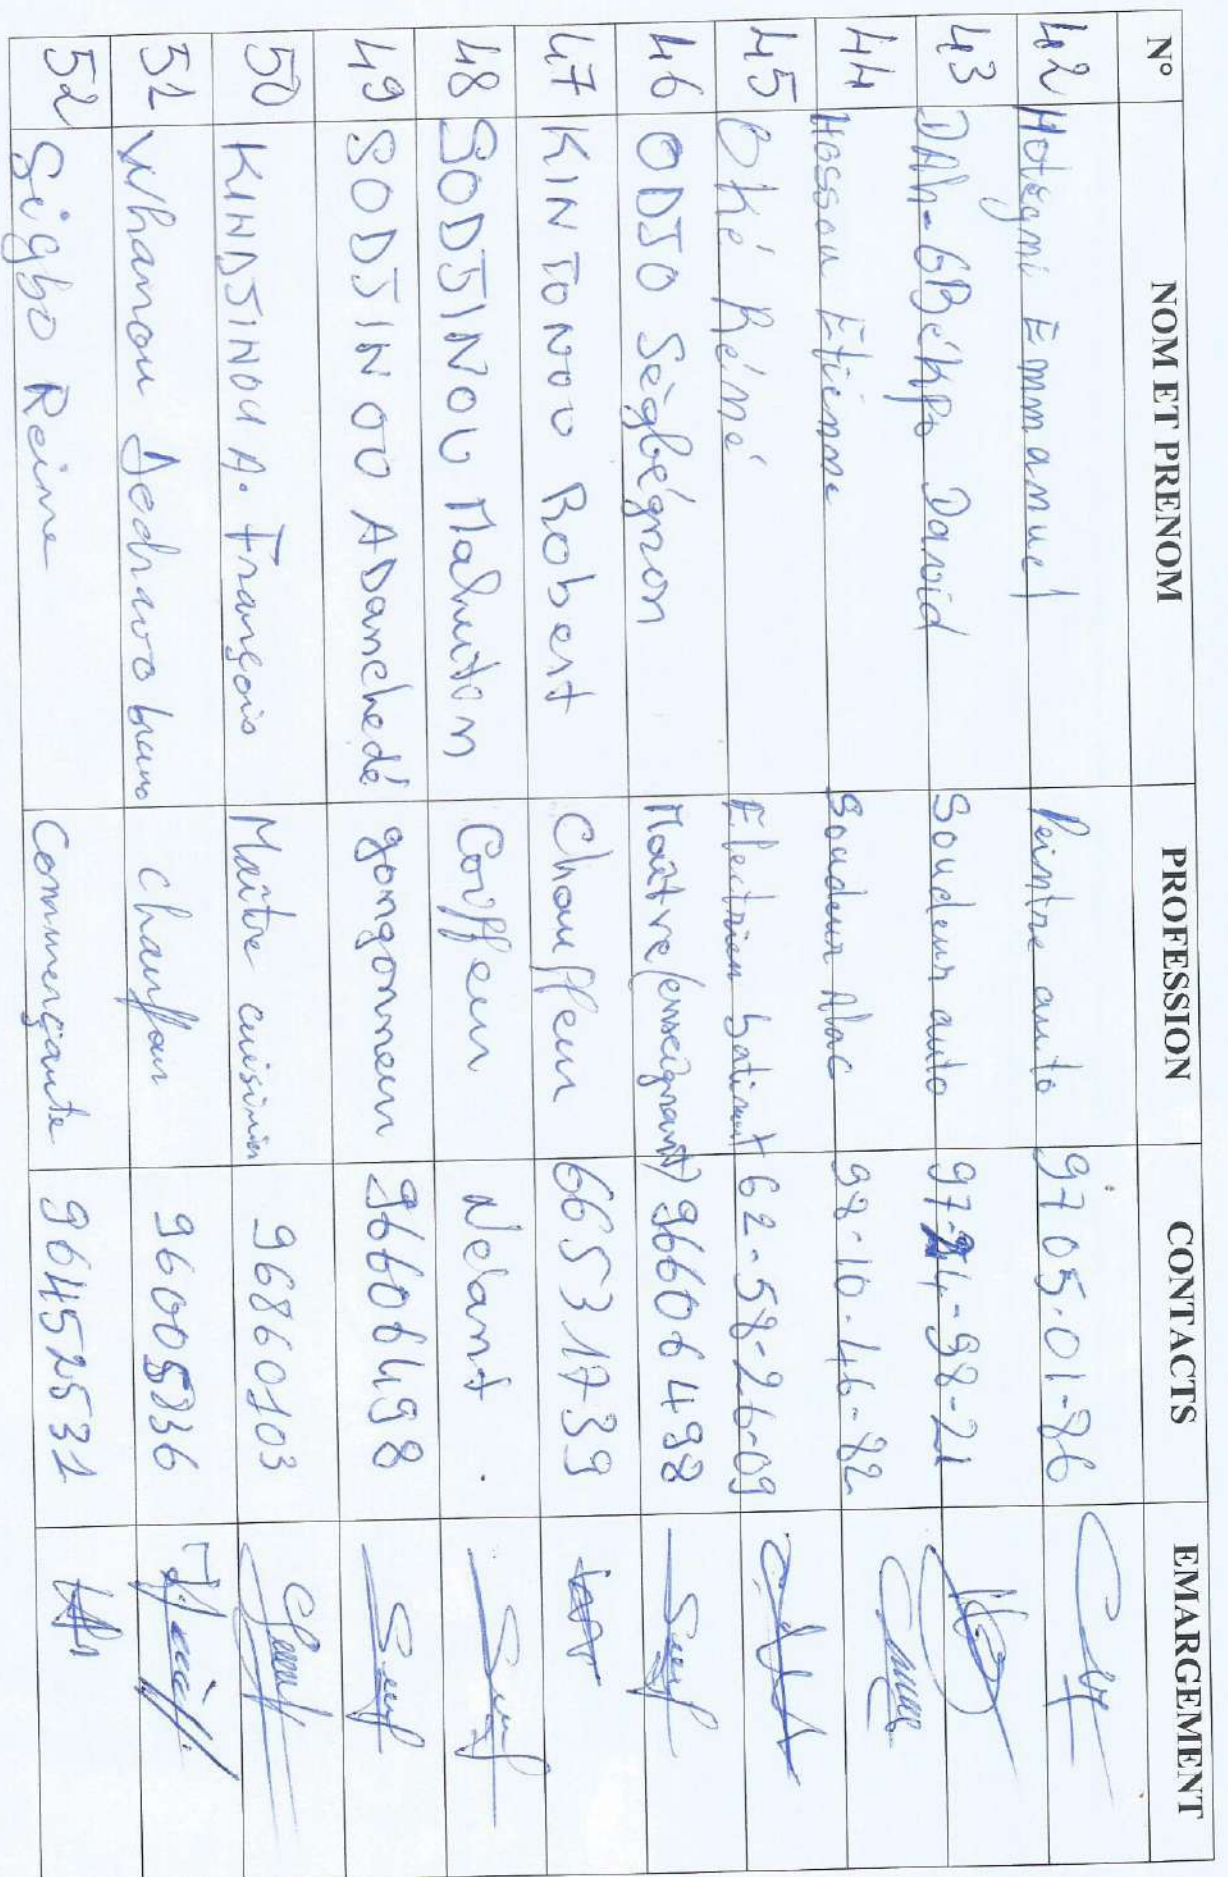 N° NOM ET PRENOM PROFESSION CONTACTS EMARGEMENT
42 Hotegni Emmanuel Peintre auto 97 05-01-86
43 DAh-GBékpo David Soudeur auto 97-94-98-21
44 Hossou Etienne Soudeur Alac 98-10-46-82
45 Oké Réné Electricien batiment 62-58-26-09
46 ODJO Sègbégnon Maître (enseignant) 96606498
47 KINTONOU Robert Chauffeur 66531739
48 SODJINOU Mahuton Coiffeur Néant.
49 SODJINOU ADanchedé gongonneur 96606498
50 KINDJINOU A. François Maître cuisinier 96860103
51 Whannou chauffeur 96005836
52 Sigbo Reine Commerçante 96452531